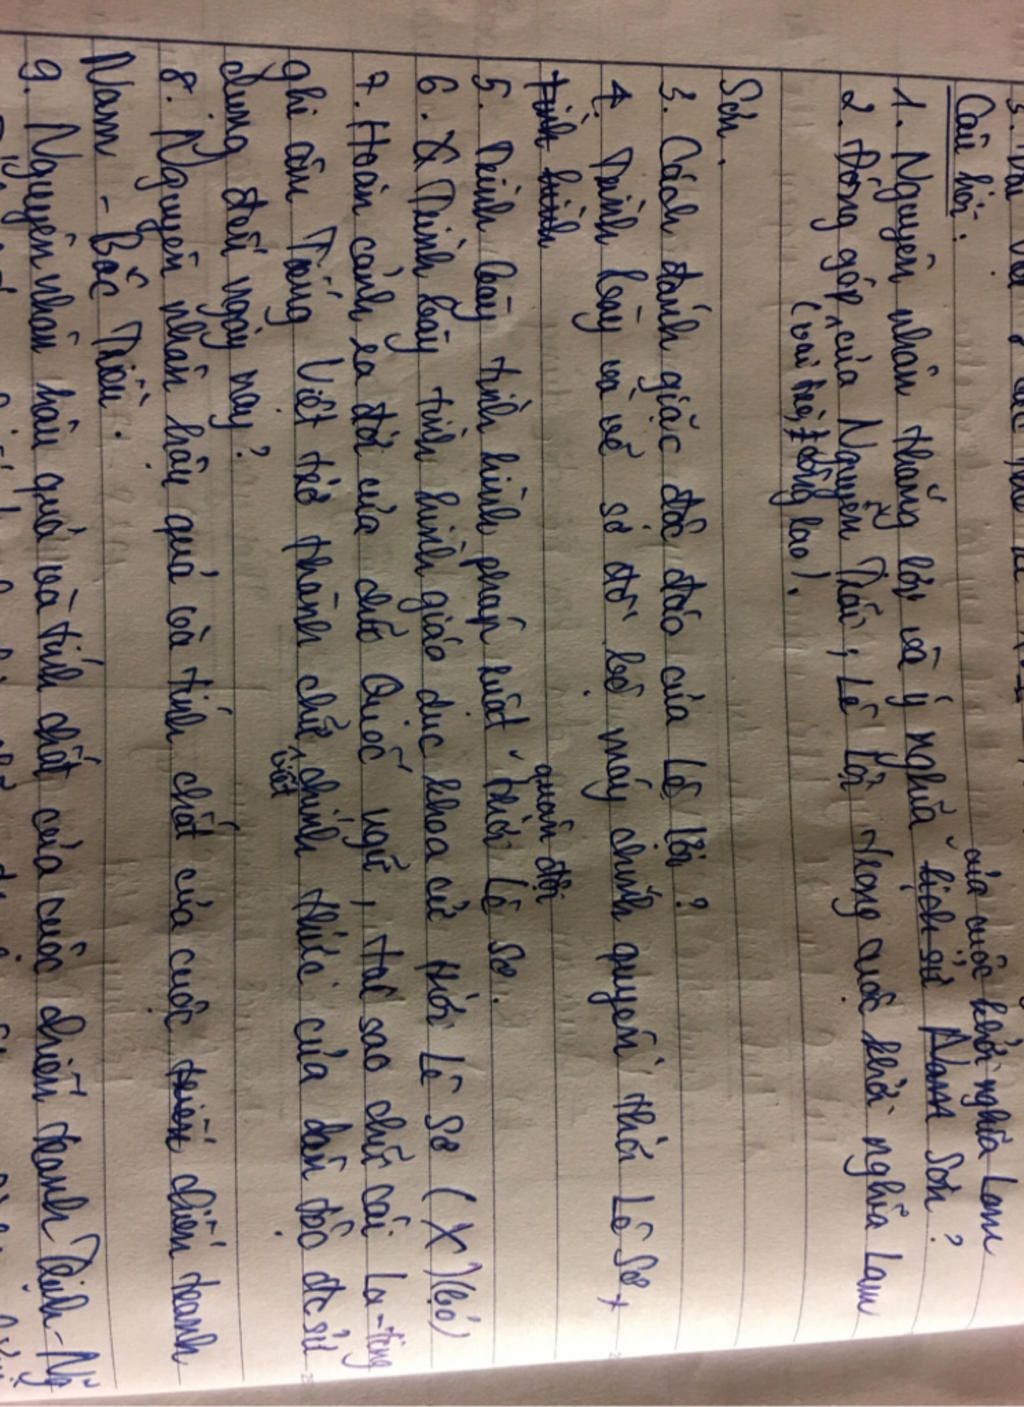 Câu hỏi:
của cuộc khởi nghĩa Lam
1. Nguyên nhân thắng lợi và ý nghĩa lịch sử Nam Sơn?
2. Đóng góp của Nguyễn Trãi, Lê Lợi trong cuộc khởi nghĩa Lam
(vai trò, công lao).
Sơn.
3. Cách đánh giặc độc đáo của Lê Lợi?
4. Trình bày và vẽ sơ đồ bộ máy chính quyền thời Lê Sơ +
tình hình quân đội
5. Trình bày tình hình pháp luật thời Lê Sơ.
6. X Trình bày tình hình giáo dục khoa cử thời Lê Sơ (X)(bỏ)
7. Hoàn cảnh ra đời của chữ Quốc ngữ, tại sao chữ cái La-tinh
ghi âm Tiếng Việt trở thành chữ viết chính thức của dân tộc đc sử
dụng đến ngày nay?
8. Nguyên nhân hậu quả và tính chất của cuộc chiến tranh
Nam - Bắc Triều.
9. Nguyên nhân hậu quả và tính chất của cuộc chiến tranh Trịnh-